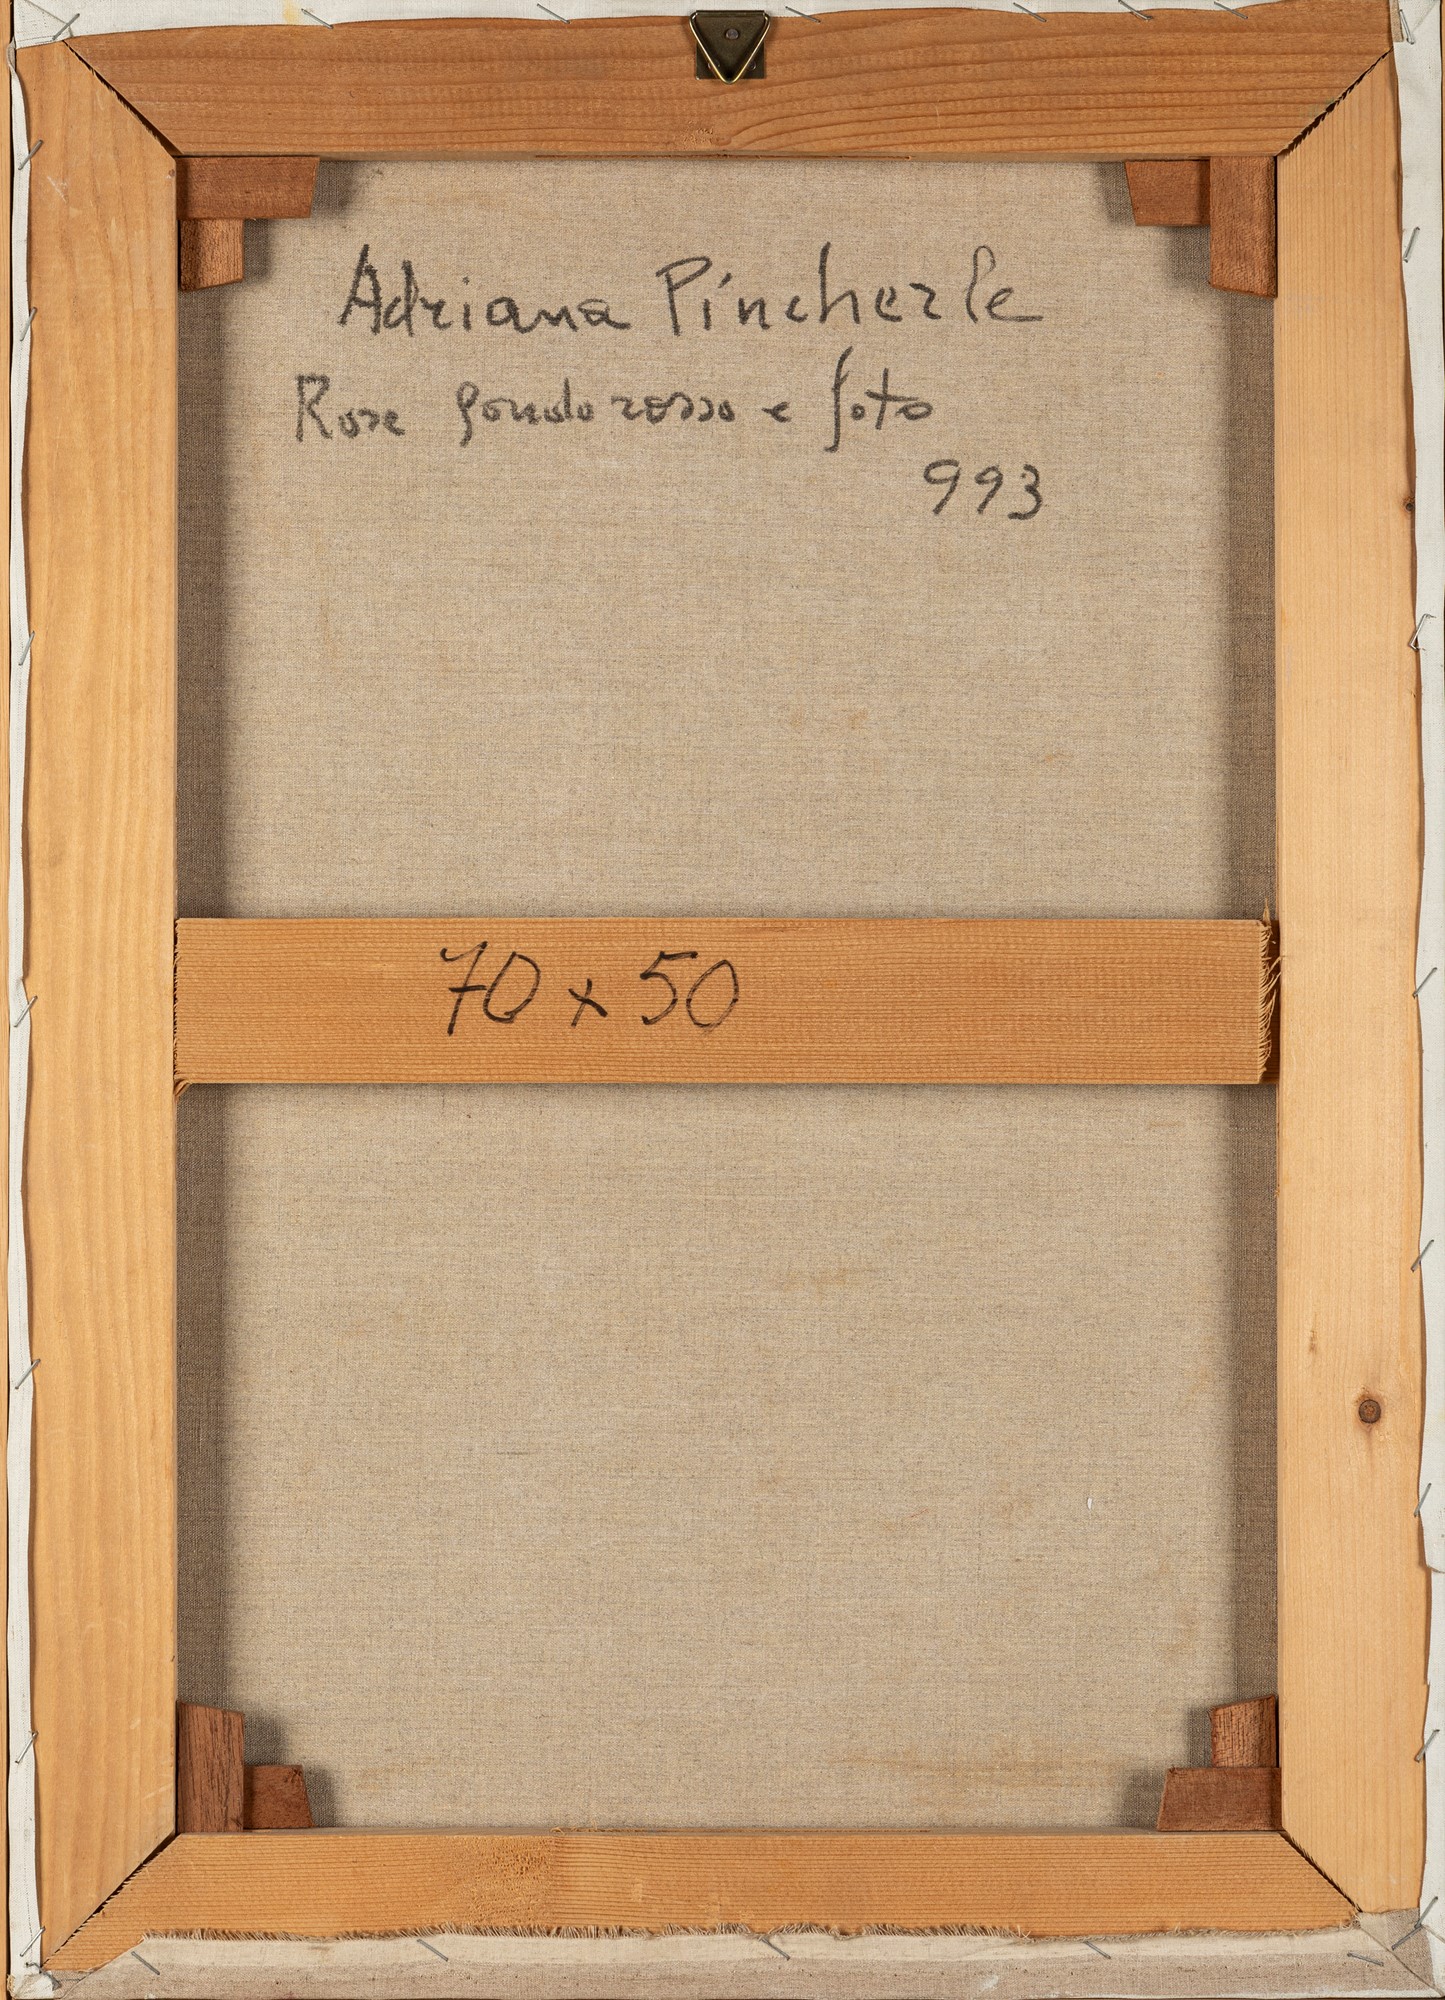 Adriana Pincherle
Rose fondo rosso e foto
993
70 x 50